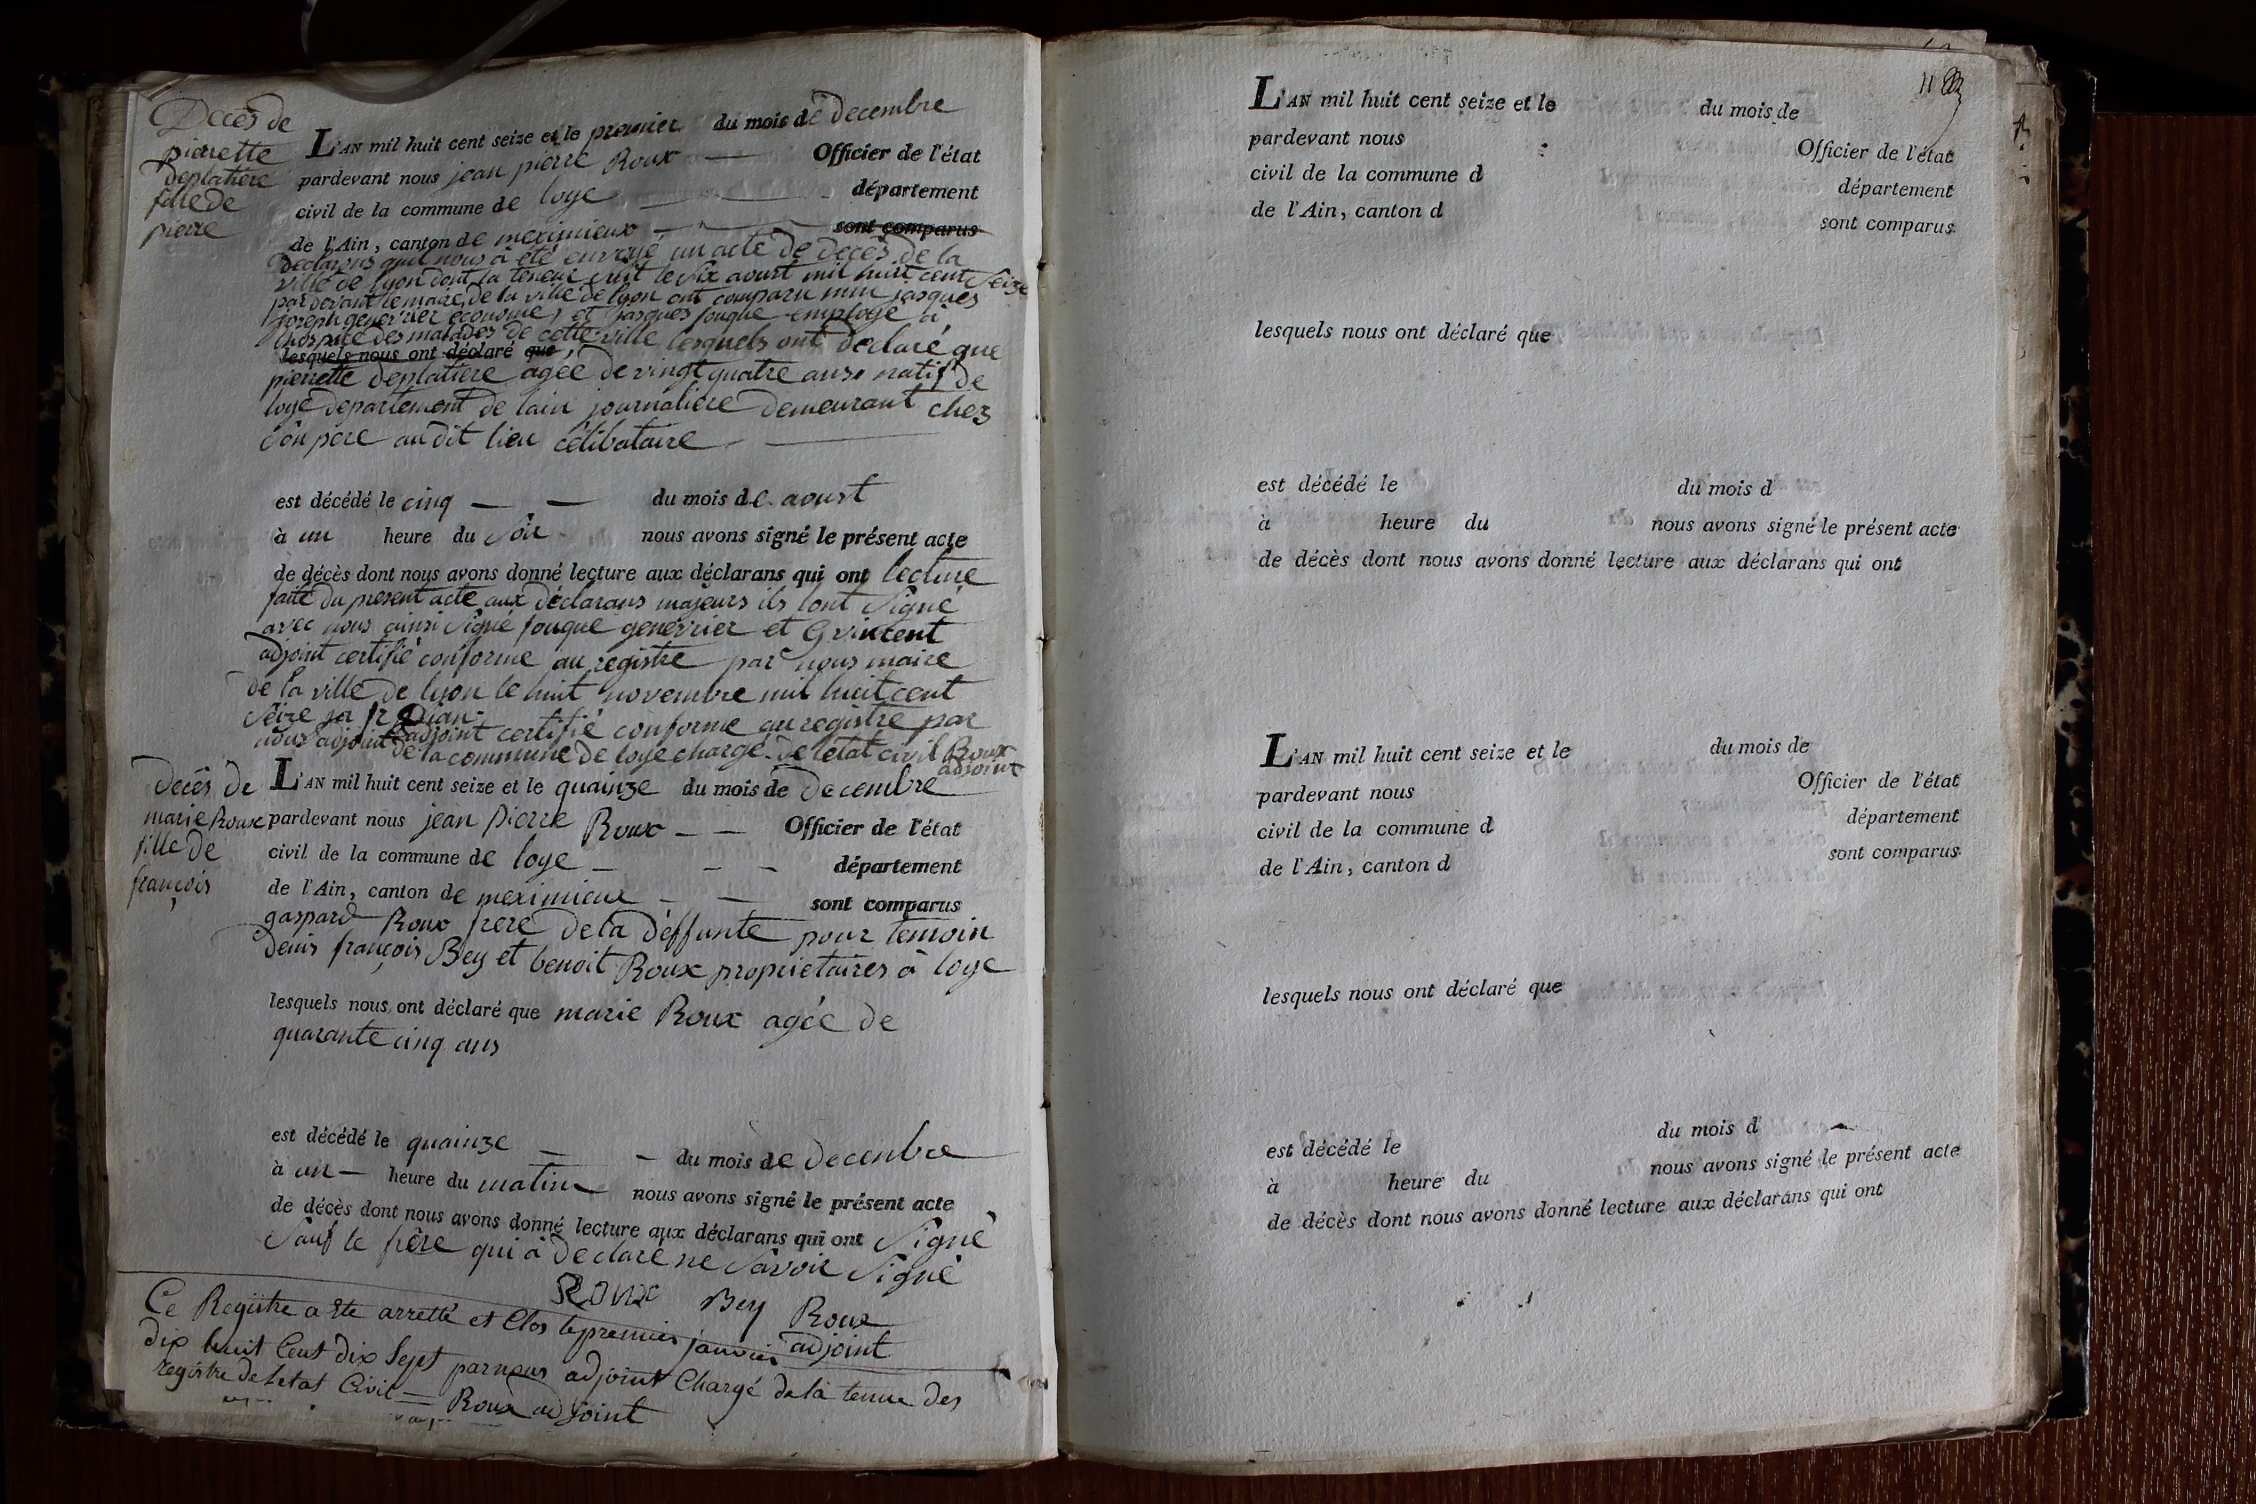 Décès de
pierrette
deplatiere
fille de
pierre
L'AN mil huit cent seize et le premier du mois de decembre
pardevant nous jean pierre Roux — Officier de l'état
civil de la commune de loye — département
de l'Ain, canton de meximieux — sont comparus
declarons quil nous à été envoyé un acte de décès de la
ville de lyon dont la teneur suit le six aoust mil huit cent seize
pardevant le maire de la ville de lyon ont comparu mm jasques
joseph genevrier econome, et jasques fouque employé à
lhospice des malades de cette ville lesquels ont déclaré que
lesquels nous ont déclaré que
pierrette deplatiere agée de vingt quatre ans natif de
loye departement de lain journaliére demeurant chez
son pere au dit lieu célibataire —
est décédé le cinq — — du mois de aoust
à un heure du soir nous avons signé le présent acte
de décès dont nous avons donné lecture aux déclarans qui ont lecture
faite du present acte aux déclarans majeurs ils lont signé
avec nous ainsi signé fouque genevrier et G vincent
adjoint certifié conforme au registre par nous maire
de la ville de lyon le huit novembre mil huit cent
seize
adjoint certifié conforme au registre par
nous adjoint de la commune de loye chargé de létat civil Roux
adjoint
décès de
marie Roux
fille de
françois
L'AN mil huit cent seize et le quainze du mois de decembre
pardevant nous jean pierre Roux — — Officier de l'état
civil de la commune de loye — — — département
de l'Ain, canton de meximieux — — sont comparus
gaspard Roux frere de la déffunte pour temoin
denis françois Bey et benoit Roux propriétaires à loye
lesquels nous ont déclaré que marie Roux agée de
quarante cinq ans
est décédé le quainze — — du mois de decembre
à un — heure du matin nous avons signé le présent acte
de décès dont nous avons donné lecture aux déclarans qui ont signé
sauf le frère qui à déclaré ne savoir signé
Roux Bey Roux
adjoint
Ce Registre a été arretté et Clos le premier janvier
dix huit Cent dix Sept par nous adjoint Chargé de la tenue des
registre de letat Civil — Roux adjoint
L'AN mil huit cent seize et le du mois de
pardevant nous Officier de l'état
civil de la commune d département
de l'Ain, canton d sont comparus
lesquels nous ont déclaré que
est décédé le du mois d
à heure du nous avons signé le présent acte
de décès dont nous avons donné lecture aux déclarans qui ont
L'AN mil huit cent seize et le du mois de
pardevant nous Officier de l'état
civil de la commune d département
de l'Ain, canton d sont comparus
lesquels nous ont déclaré que
est décédé le du mois d
à heure du nous avons signé le présent acte
de décès dont nous avons donné lecture aux déclarans qui ont